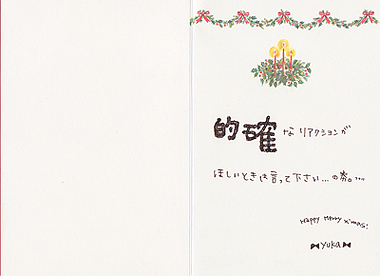 的確なリアクションが
ほしいときは言って下さい…の券。…
Happy Merry X'mas!
YUKA